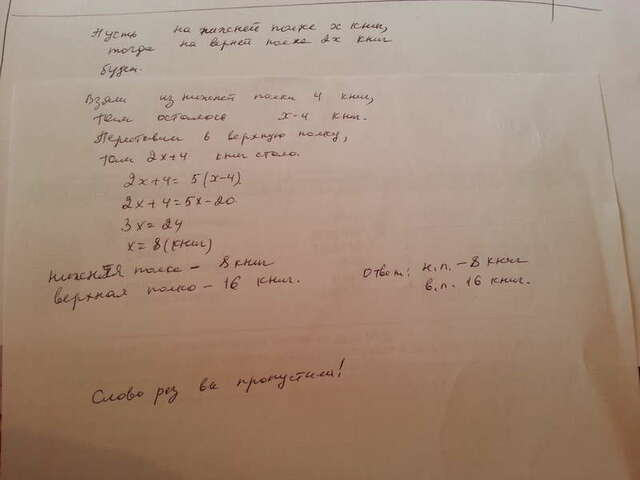 Пусть на нижней полке x книг,
тогда на верней полке 2x книг
будет.
Взяли из нижней полки 4 книг,
там осталось x-4 книг.
Переставили в верхную полку,
там 2x+4 книг стало.
2x+4=5(x-4)
2x+4=5x-20
3x=24
x=8(книг)
нижнетя полка - 8 книг
верхная полка - 16 книг.
Ответ: н.п. - 8 книг
в.п. 16 книг.
Слово раз вы пропустили!